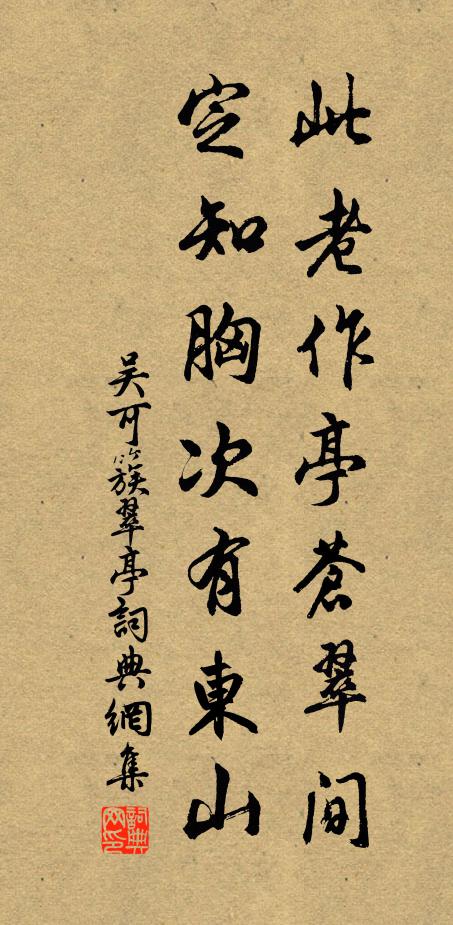 此老作亭苍翠间
定知胸次有東山
吴可簇翠亭詞典網集
詞典网印